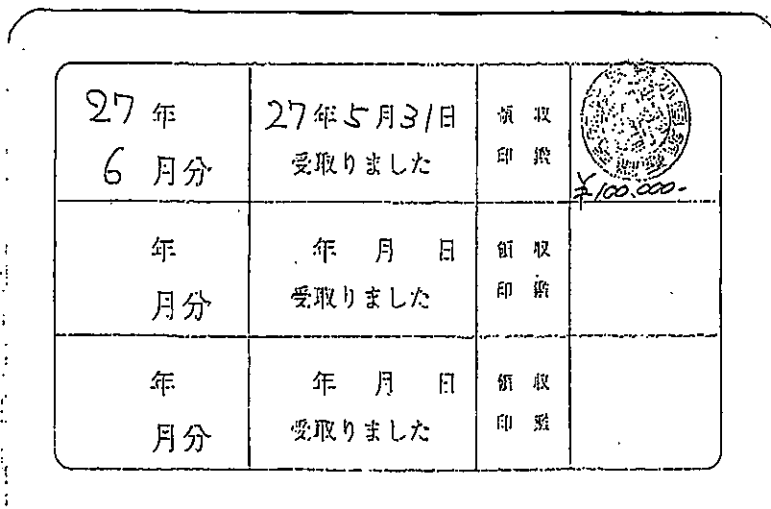 27年
6月分
27年5月31日
受取りました
領収
印鑑
¥100.000-
年
月分
年 月 日
受取りました
領収
印鑑
年
月分
年 月 日
受取りました
領収
印鑑